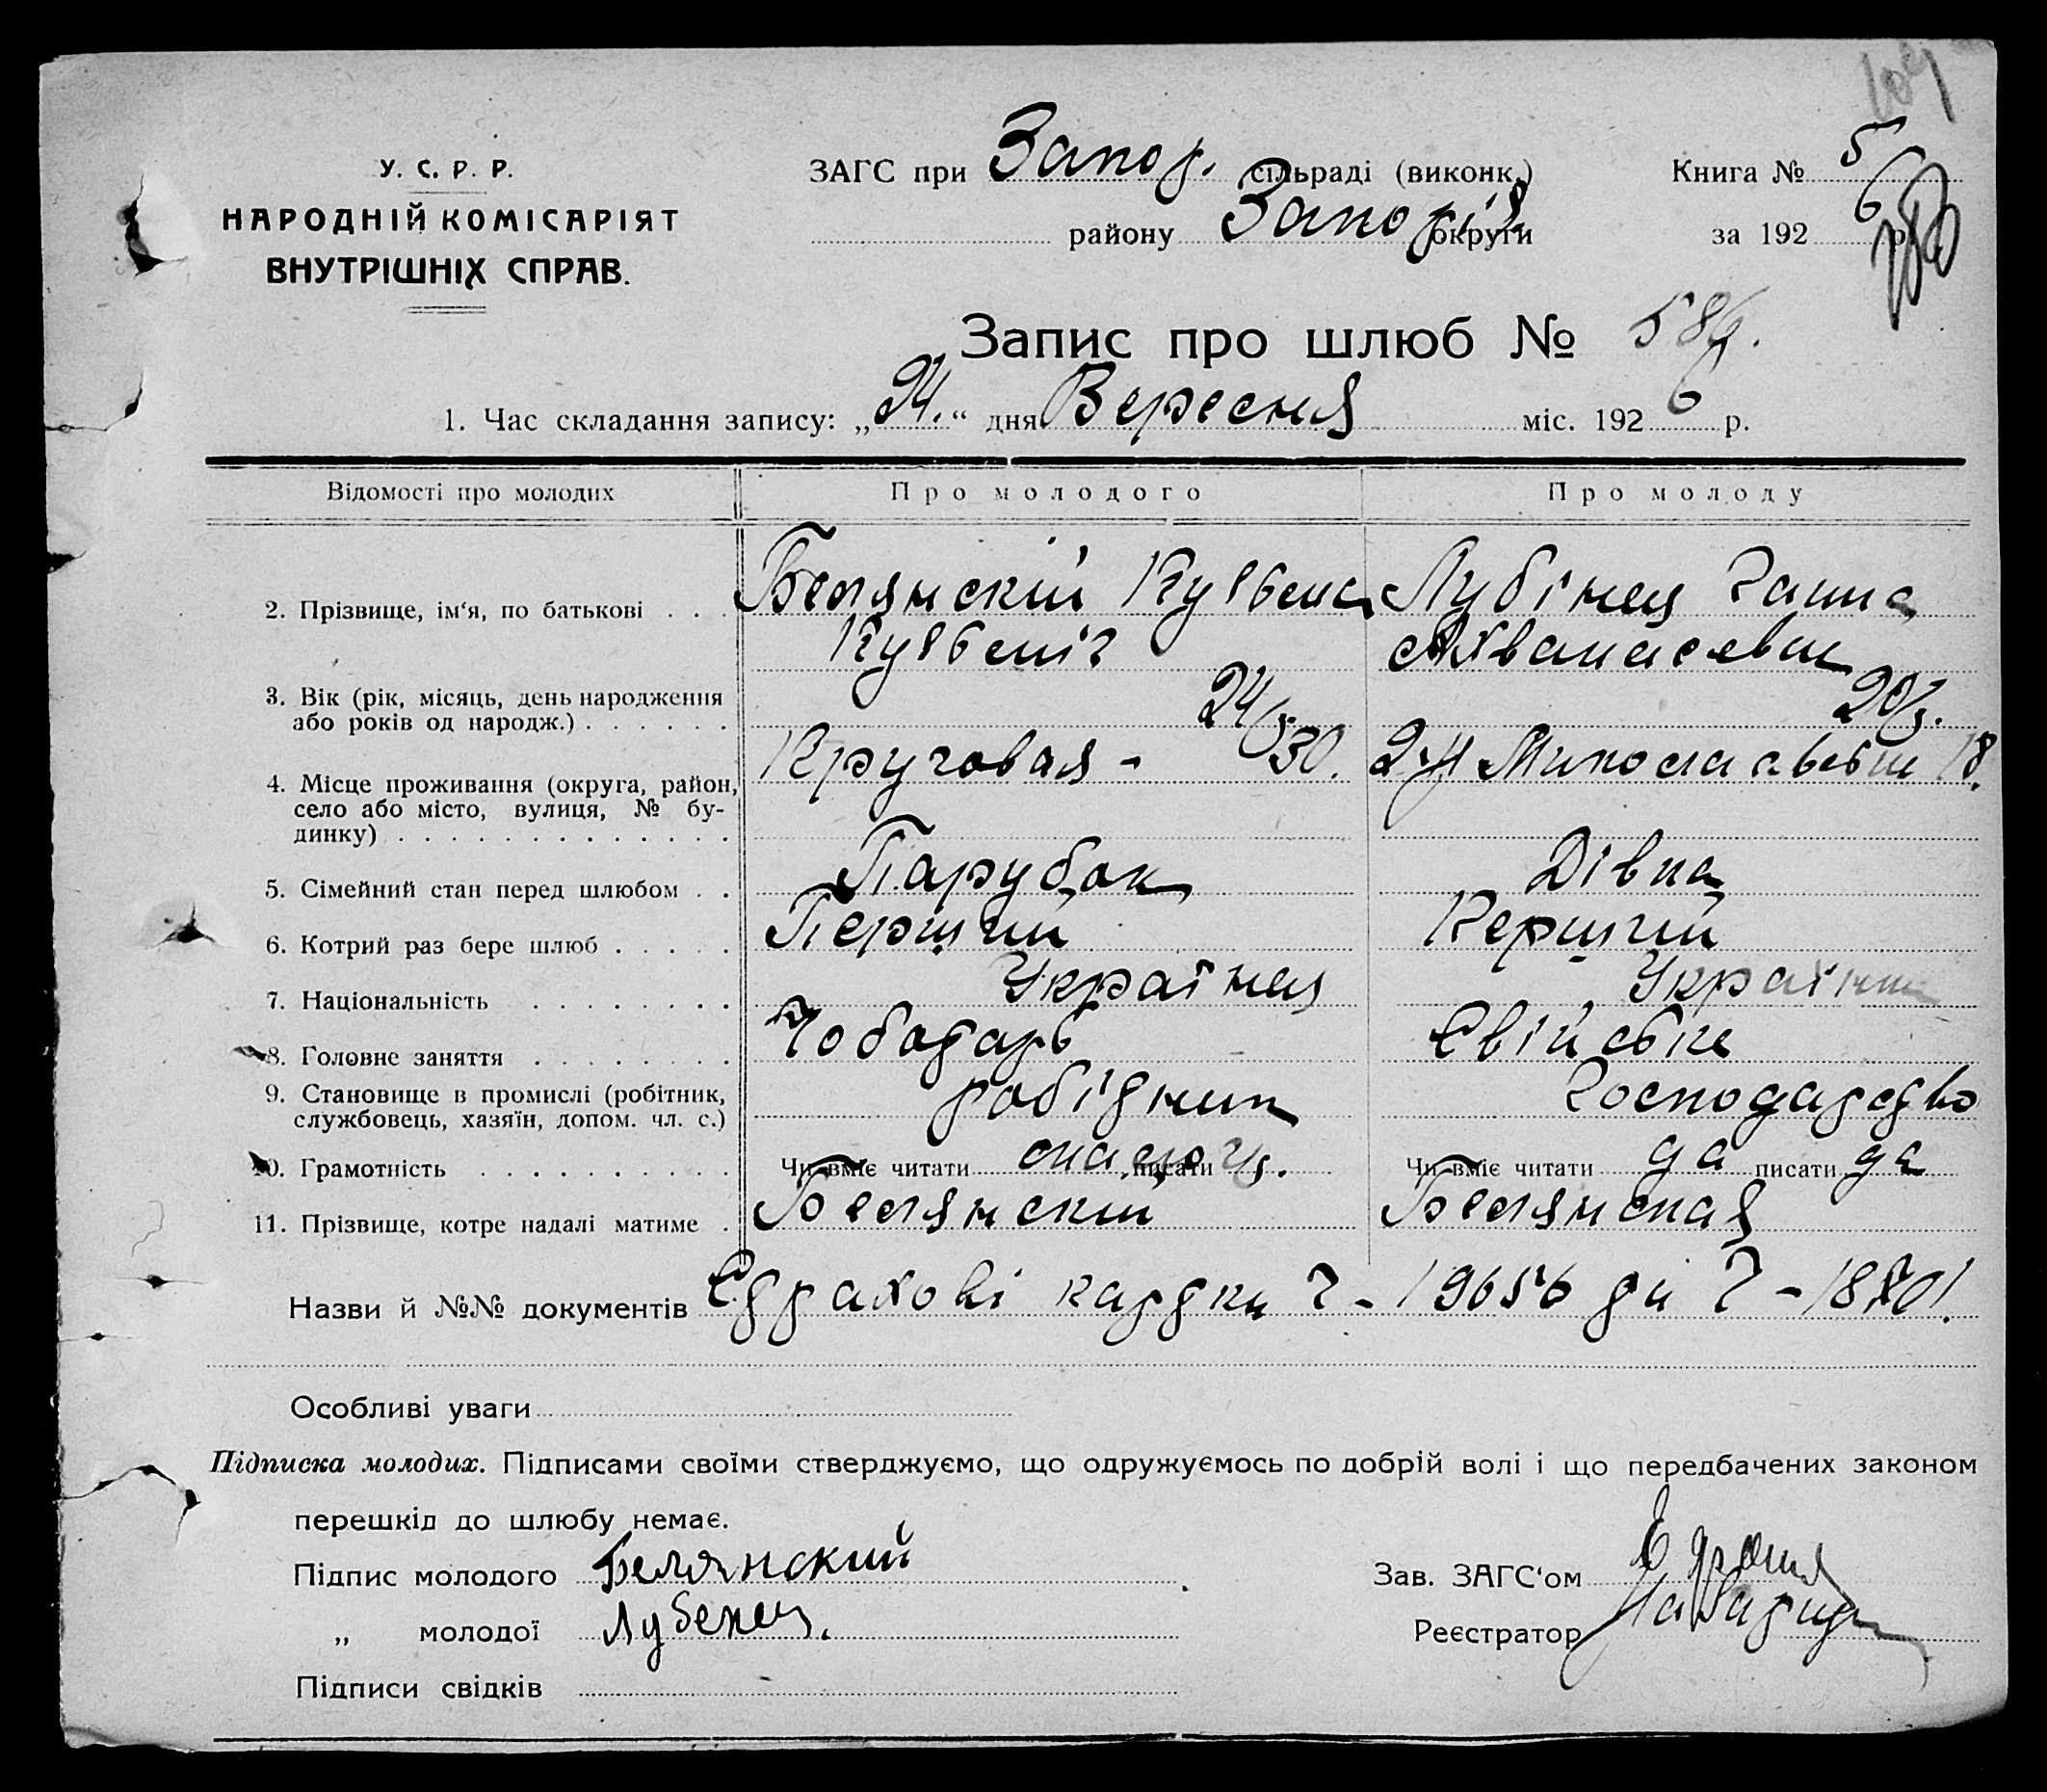 У. С. Р. Р.
НАРОДНІЙ КОМІСАРІЯТ
ВНУТРІШНІХ СПРАВ.
ЗАГС при Запор. сільраді (виконк.)
району Запоріз округи
Книга № 5
за 192 6 р.
Запис про шлюб № 586.
1. Час складання запису: „24.“ дня Вересня міс. 192 6 р.
Відомості про молодих Про молодого Про молоду
2. Прізвище, ім'я, по батькові . . . Белянскій Кузьма Лубінец Ганна
Кузьміч Ахванасевна
3. Вік (рік, місяць, день народження
або років од народж.) . . . . . . 24 20
4. Місце проживання (округа, район, Круговая - 30. 18.
село або місто, вулиця, № бу-
динку) . . . . . . . . . . . . .
5. Сімейний стан перед шлюбом . . Парубок Дівка
6. Котрий раз бере шлюб . . . . . Перший Перший
7. Національність . . . . . . . Українец Українка
8. Головне заняття . . . . . . . Чоботарь Свійське
9. Становище в промислі (робітник, робітник Господарство
службовець, хазяїн, допом. чл. с.)
10. Грамотність . . . . . . . . . Чи вміє читати писати Чи вміє читати да писати да
11. Прізвище, котре надалі матиме . Белянский Белянская
Назви й №№ документів Страхові картки Ч - 19656 та Ч - 18701.
Особливі уваги
Підписка молодих. Підписами своїми стверджуємо, що одружуємось по добрій волі і що передбачених законом
перешкід до шлюбу немає.
Підпис молодого Белянский
„ молодої Лубенец.
Підписи свідків
Зав. ЗАГС'ом
Реєстратор